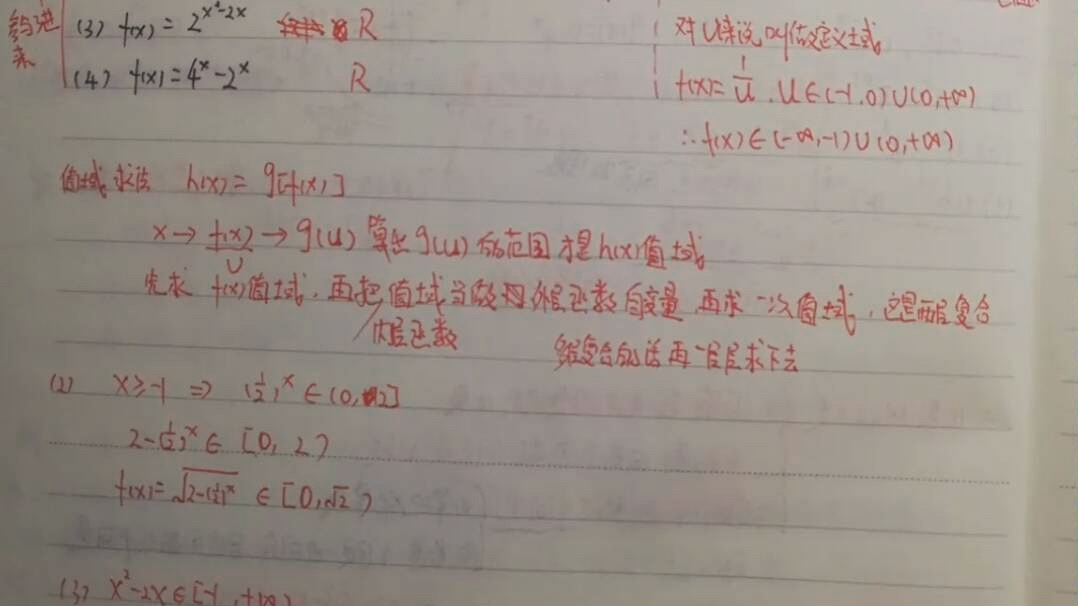 (3) f(x) = 2^{x²-2x} R
(4) f(x) = 4^x - 2^x R
对U来说 0也是定义域
f(x) = 1/U . U∈(-1.0)∪(0,+∞)
∴f(x)∈(-∞,-1)∪(0,+∞)
值域求法 h(x) = g[f(x)]
x → f(x) → g(u) 算出g(u)的范围才是h(x)值域
U
先求 f(x)值域. 再把值域当做外层函数自变量 再求一次值域, 这是两层复合
内层函数 多层复合的话再一层层求下去
(2) x≥-1 ⇒ (1/2)^x ∈ (0, 2]
2-(1/2)^x ∈ [0, 2)
f(x) = √(2-(1/2)^x) ∈ [0, √2)
(3) x²-2x∈[-1, +∞)